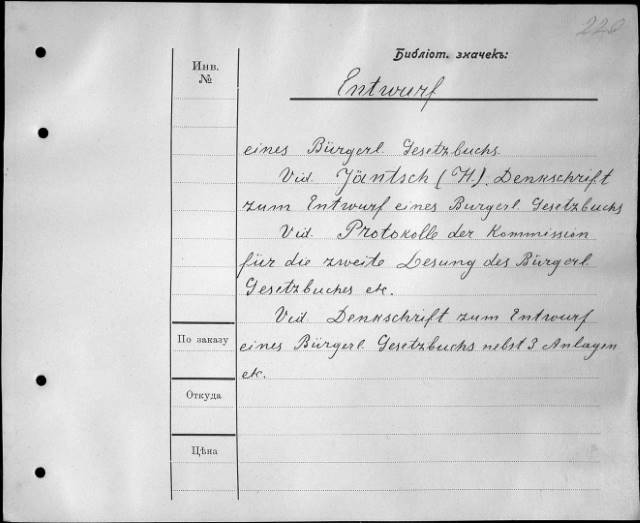 220
Библіот. значекъ:
Инв.
№
Entwurf
eines Bürgerl. Gesetzbuchs.
Vid. Jäntsch (H). Denkschrift
zum Entwurf eines Burgerl. Gesetzbuchs
Vid. Protokolle der Kommission
für die zweite Lesung des Bürgerl.
Gesetzbuches etc.
Vid. Denkschrift zum Entwurf
По заказу
eines Bürgerl. Gesetzbuchs nebst 3 Anlagen
etc.
Откуда
Цѣна